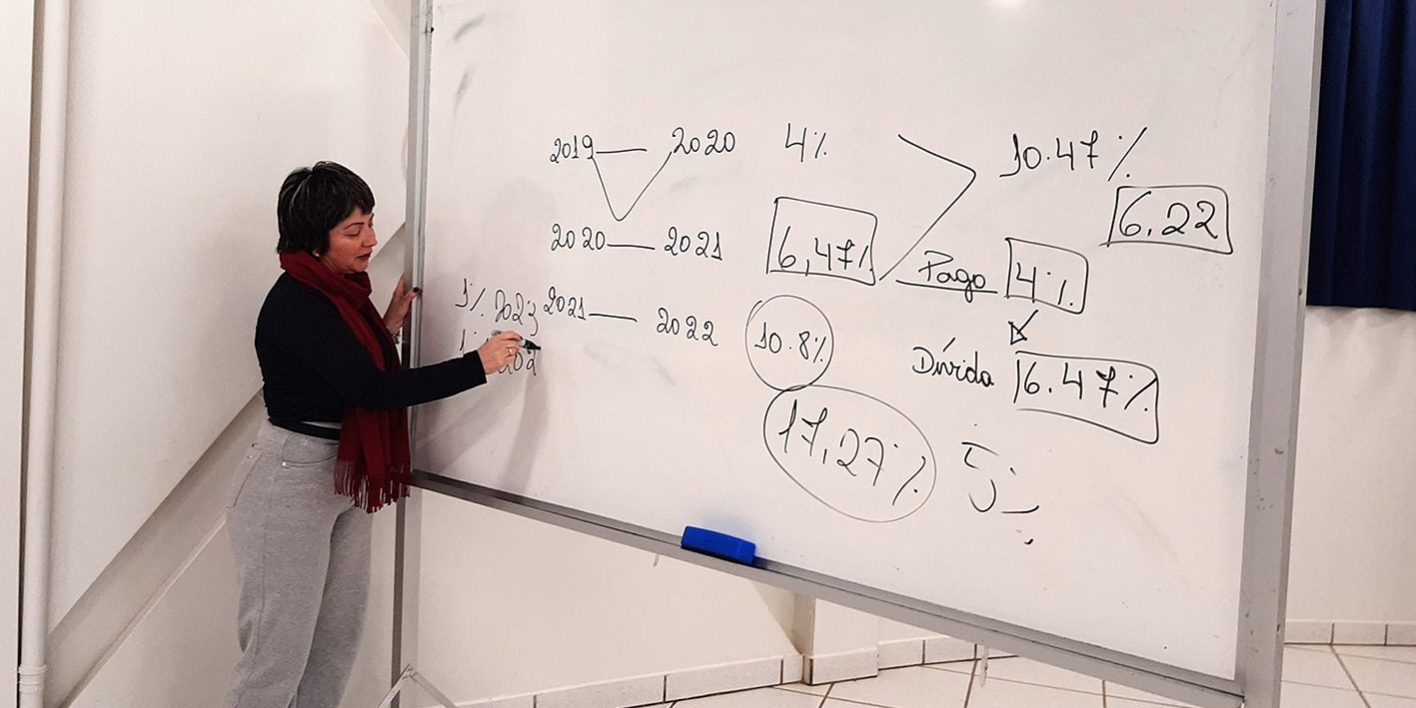 2019 — 2020 4% 10.47%
6,22
2020 — 2021 6,47%
Pago 4%
1% 2023 2021 — 2022 10.8%
Dívida 6.47%
17,27%